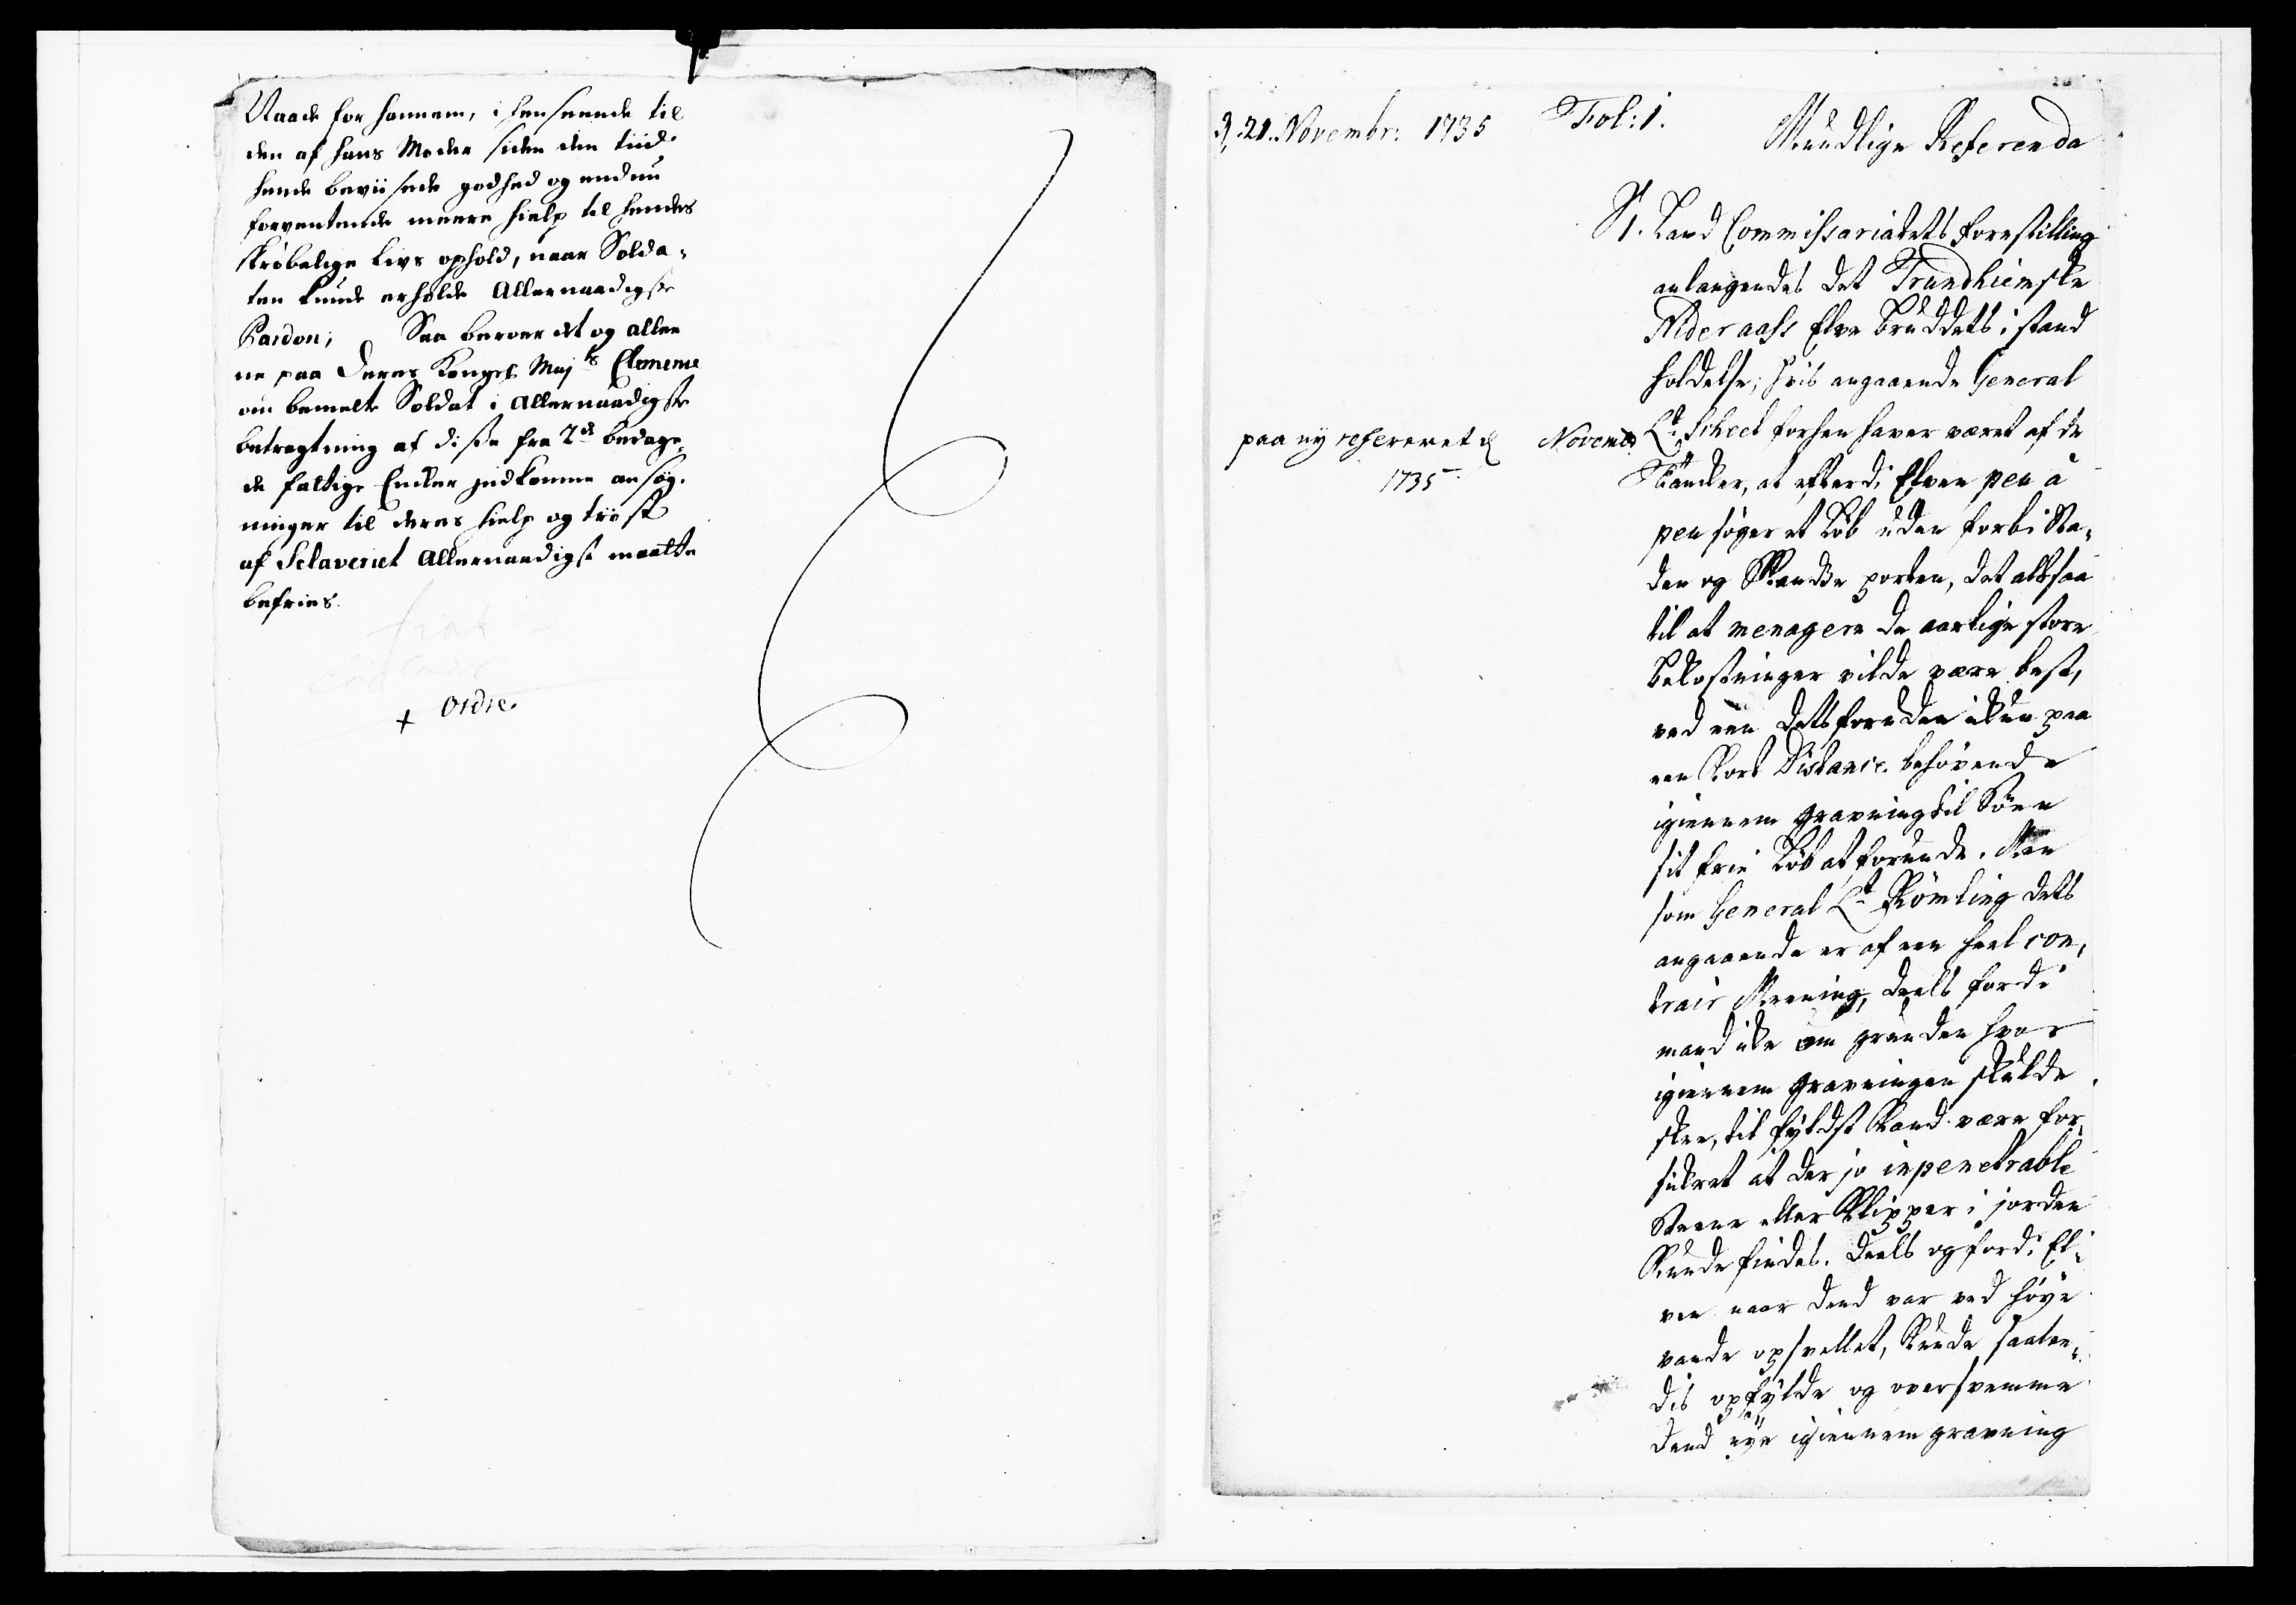 Naade for hannem, i henseende til
den af hans Moder siden den tiid
hende beviisede godhed og endnu
forventende meere hielp til hendes
skröbelige Livs ophold, naar Solda-
ten kunde erholde Allernaadigste
Pardon; Saa beroer det og allee
ne paa Deres Kongel Maj.ts Clemence
om bemelte Soldat i Allernaadigste
betragtning af disse fra 2de bedage-
de fattige Enker indkomne ansøg-
ninger til deres hielp og tröst
af Sclaveriet Allernaadigst maatte
befries.
+ Ordre.
d. 21. Novembr: 1735 Fol: 1.
Mundlige Referenda
1. Land Commissariatets forestilling
anlangendes det Trundhiemske
Nideraass Elve bruddets i stand
holdelse; hvis angaaende General
Lt Scheel forhen haver været af de
paa ny refereret d Novemb.
1735
Tancker, at efterdi Elven peu à
peu söger et Löb uden forbi Sta-
den og Skandse porten, det altsaa
til at menagere de aarlige store
bekostninger vilde være best,
ved een dets foreden ikun paa
een kort Distance behövende
igiennem gravning til Söen
sit frie Löb at forunde. Men
som General Lt Römling dets
angaaende er af een heel con-
trair Meening, deels fordi
mand icke om grunden hvor
igiennem gravningen skulde
skee, til fyldst kand være for-
sikret at der jo inpenetrable
Steene eller Klipper i jorden
kunde findes. Deels og fordi El-
ven naar dend var ved höye
vande opsvellet, kunde saale-
dis opfylde og oversvemme
dend nye igiennem gravning